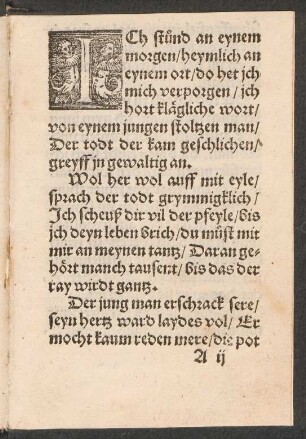 ICh stůnd an eynem
morgen/heymlich an
eynem ort/do het jch
mich verporgen/jch
hort klägliche wort/
von eynem jungen stoltzen man/
Der todt der kam geschlichen/
greyff jn gewaltig an.
Wol her wol auff mit eyle/
sprach der todt grymmigklich/
Ich scheuß dir vil der pfeyle/bis
ich deyn leben brich/du můst mit
mir an meynen tantz/Daran ge-
hört manch tausent/bis das der
ray wirdt gantz.
Der jung man erschrack sere/
seyn hertz ward laydes vol/Er
mocht kaum reden mere/die pot
A ij